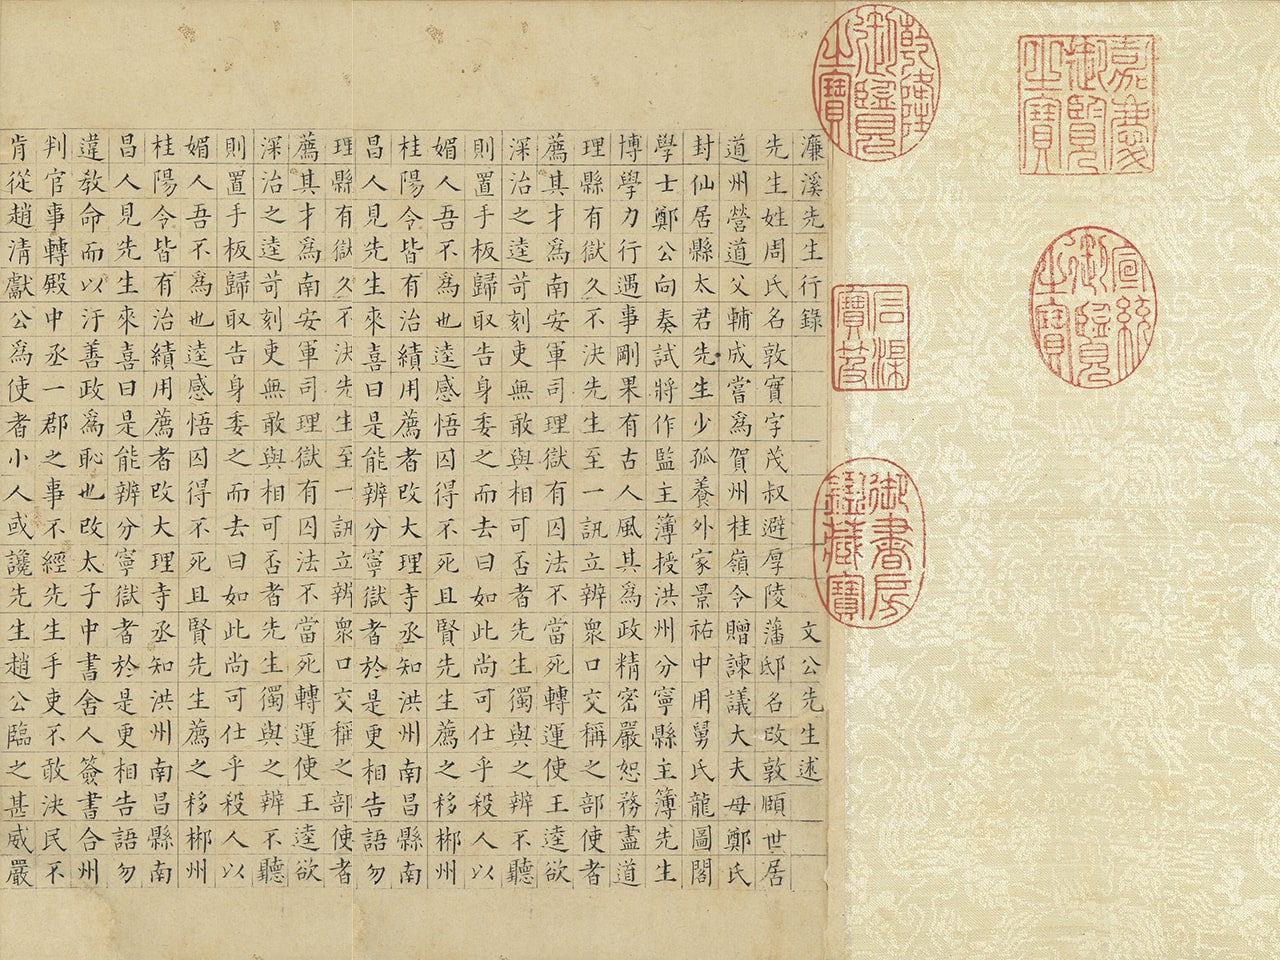 嘉慶御覽之寶
宣統御覽之寶
乾隆御覽之寶
石渠寶笈
御書房鑑藏寶
濂溪先生行錄 文公先生述
先生姓周氏名敦實字茂叔避厚陵藩邸名改敦頤世居
道州營道父輔成嘗爲賀州桂嶺令贈諫議大夫母鄭氏
封仙居縣太君先生少孤養外家景祐中用舅氏龍圖閣
學士鄭公向奏試將作監主簿授洪州分寧縣主簿先生
博學力行遇事剛果有古人風其爲政精密嚴恕務盡道
理縣有獄久不決先生至一訊立辨衆口交稱之部使者
薦其才爲南安軍司理獄有囚法不當死轉運使王逵欲
深治之逵苛刻吏無敢與相可否者先生獨與之辨不聽
則置手板歸取告身委之而去曰如此尚可仕乎殺人以
媚人吾不爲也逵感悟囚得不死且賢先生薦之移郴州
桂陽令皆有治績用薦者改大理寺丞知洪州南昌縣南
昌人見先生來喜曰是能辨分寧獄者於是更相告語勿
理縣有獄久不決先生至一訊立辨衆口交稱之部使者
薦其才爲南安軍司理獄有囚法不當死轉運使王逵欲
深治之逵苛刻吏無敢與相可否者先生獨與之辨不聽
則置手板歸取告身委之而去曰如此尚可仕乎殺人以
媚人吾不爲也逵感悟囚得不死且賢先生薦之移郴州
桂陽令皆有治績用薦者改大理寺丞知洪州南昌縣南
昌人見先生來喜曰是能辨分寧獄者於是更相告語勿
違教命而以汙善政爲恥也改太子中書舍人簽書合州
判官事轉殿中丞一郡之事不經先生手吏不敢決民不
肯從趙清獻公爲使者小人或讒先生趙公臨之甚威嚴